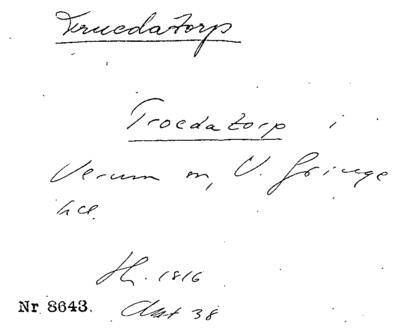 Truedatorp
Troedatorp i
Verum sn, V. Göinge
hd.
Hl. 1816
Nr. 8643. Akt 38